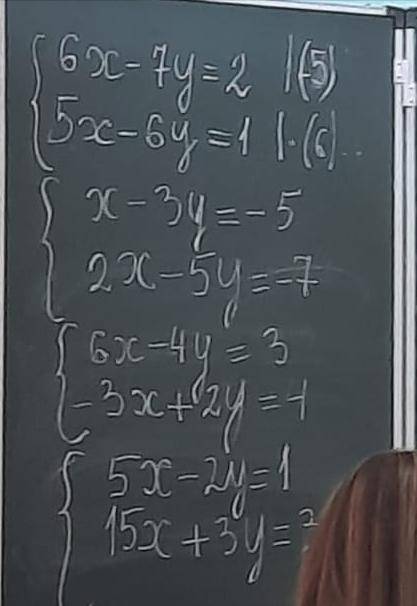 6x - 7y = 2 |(-5)
5x - 6y = 1 |·(6)
x - 3y = -5
2x - 5y = -7
6x - 4y = 3
-3x + 2y = -1
5x - 2y = 1
15x + 3y =